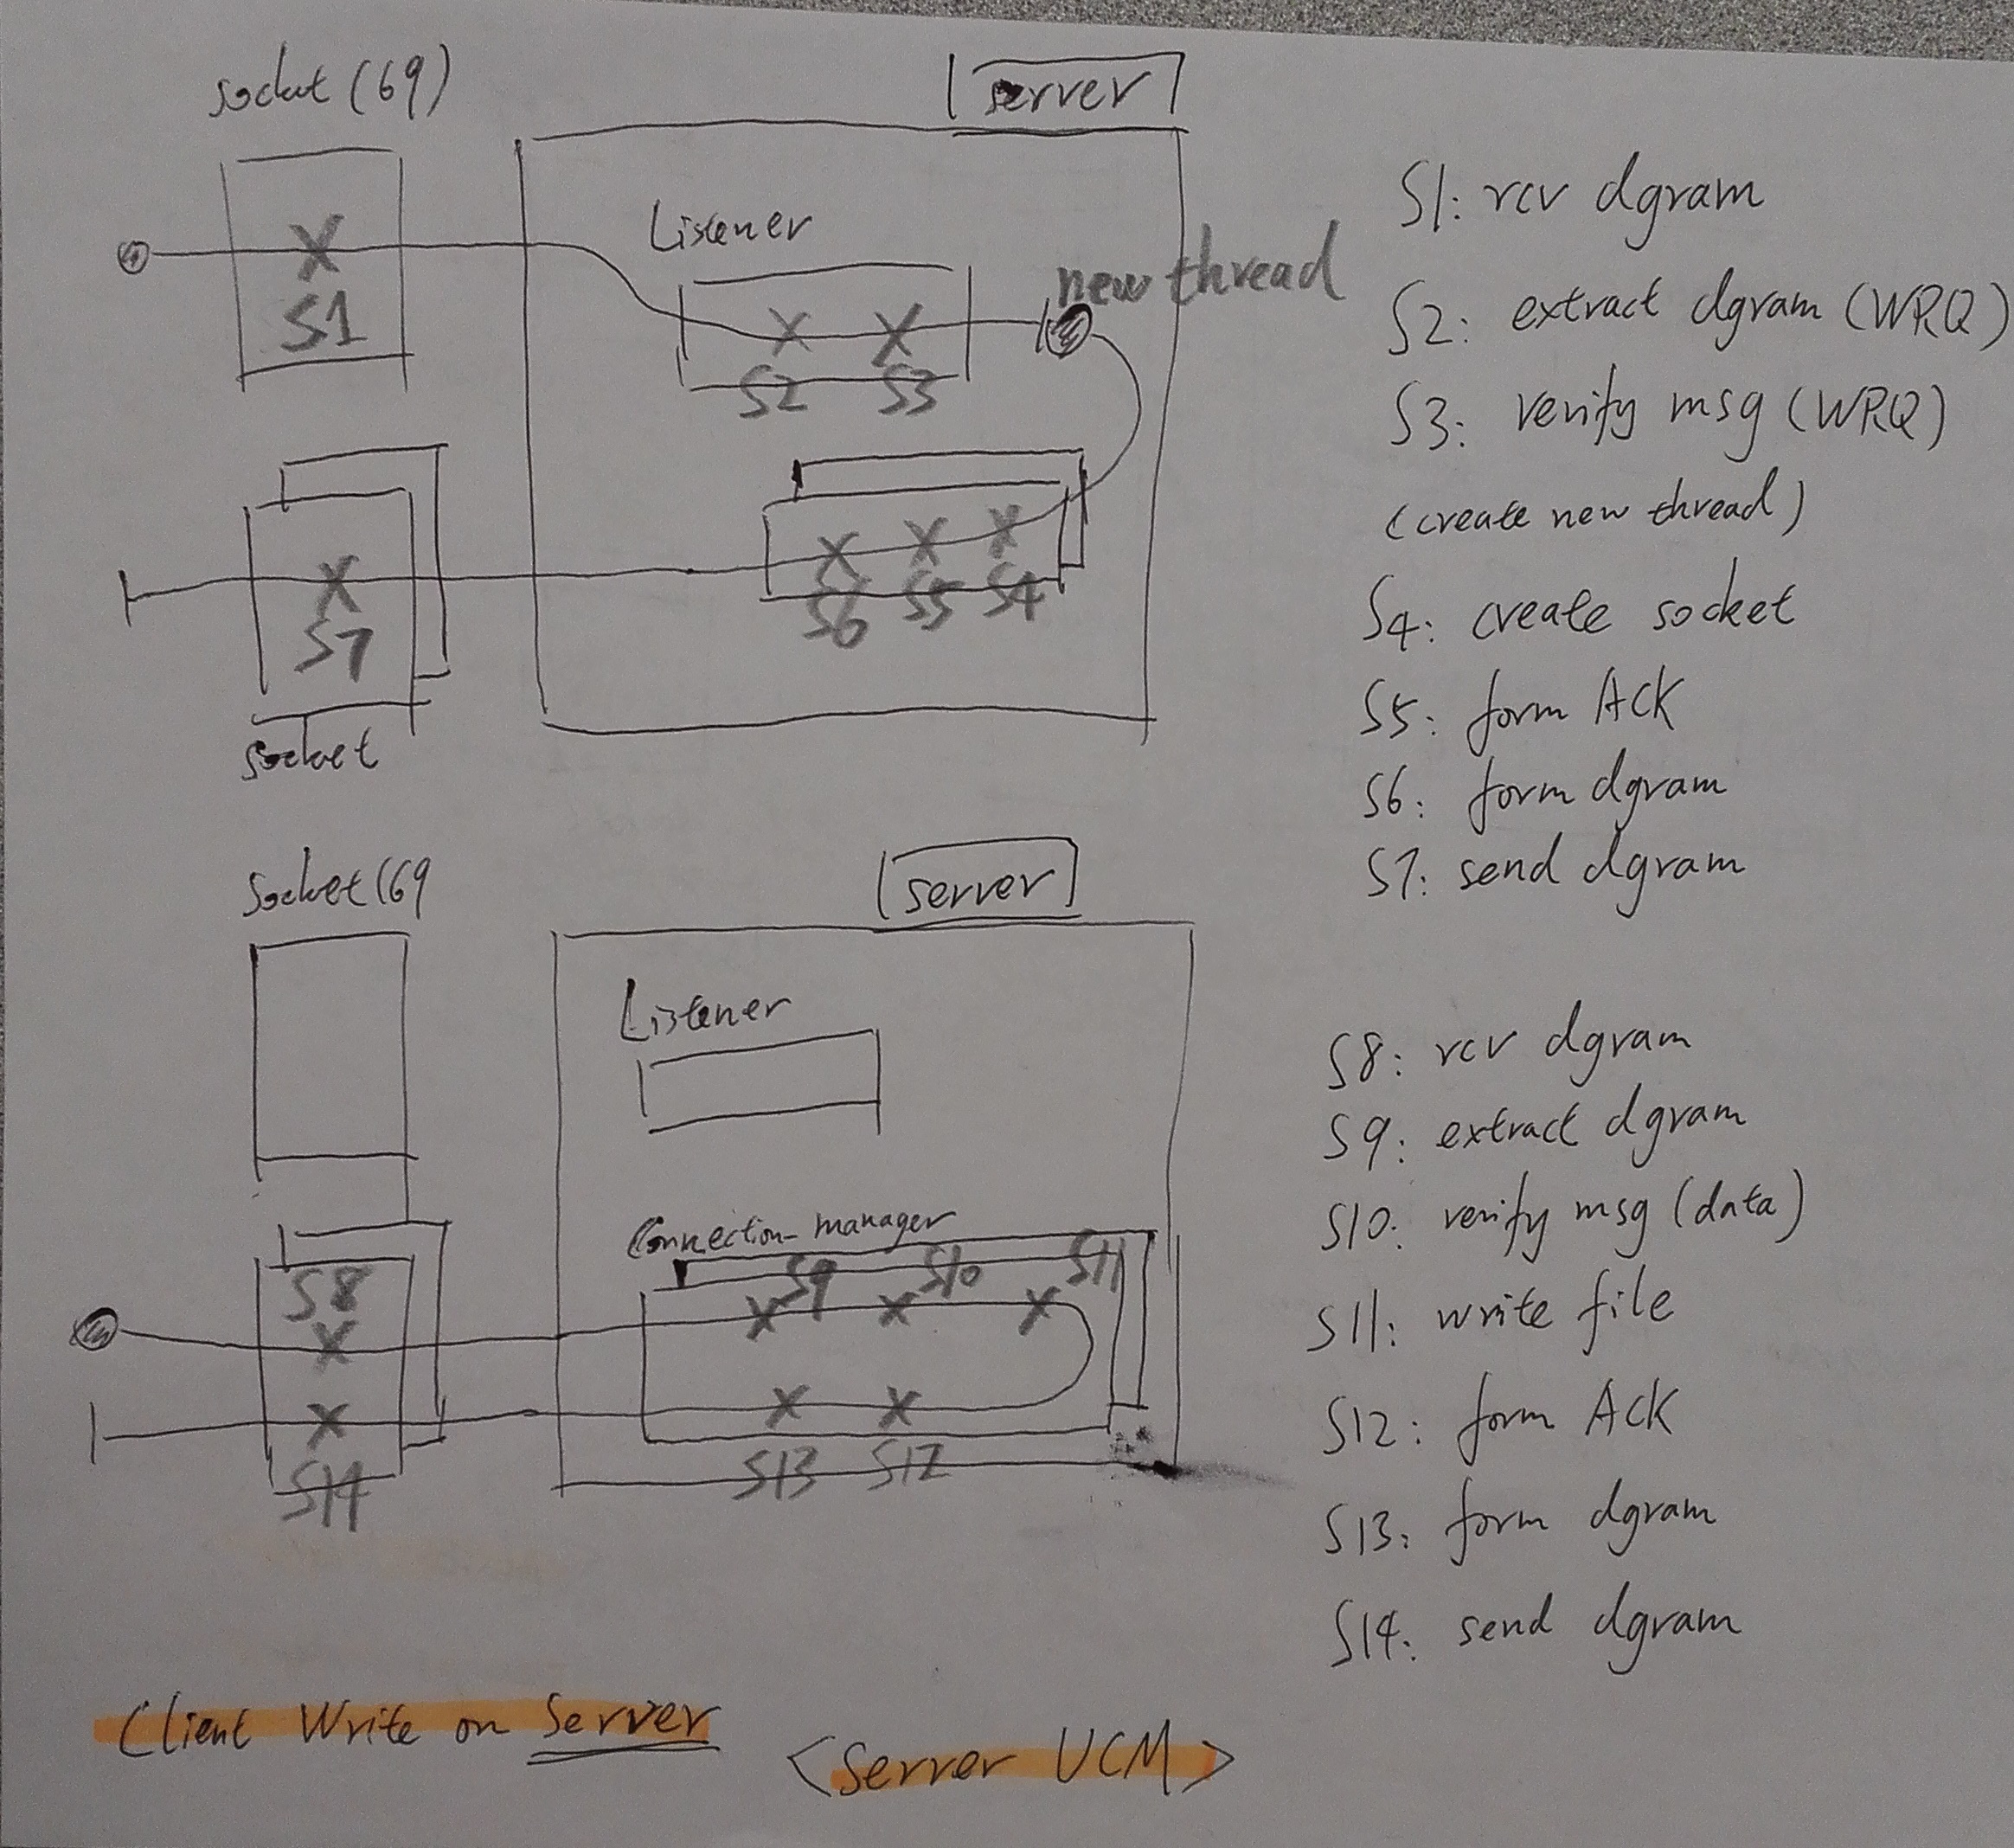 socket (69)
server
Listener
new thread
S1
S2 S3
S6 S5 S4
S7
socket
S1: rcv dgram
S2: extract dgram (WRQ)
S3: verify msg (WRQ)
(create new thread)
S4: create socket
S5: form ACK
S6: form dgram
S7: send dgram
Socket (69
server
Listener
Connection-manager
S8
S9 S10 S11
S13 S12
S14
S8: rcv dgram
S9: extract dgram
S10: verify msg (data)
S11: write file
S12: form ACK
S13: form dgram
S14: send dgram
Client Write on Server
<Server UCM>